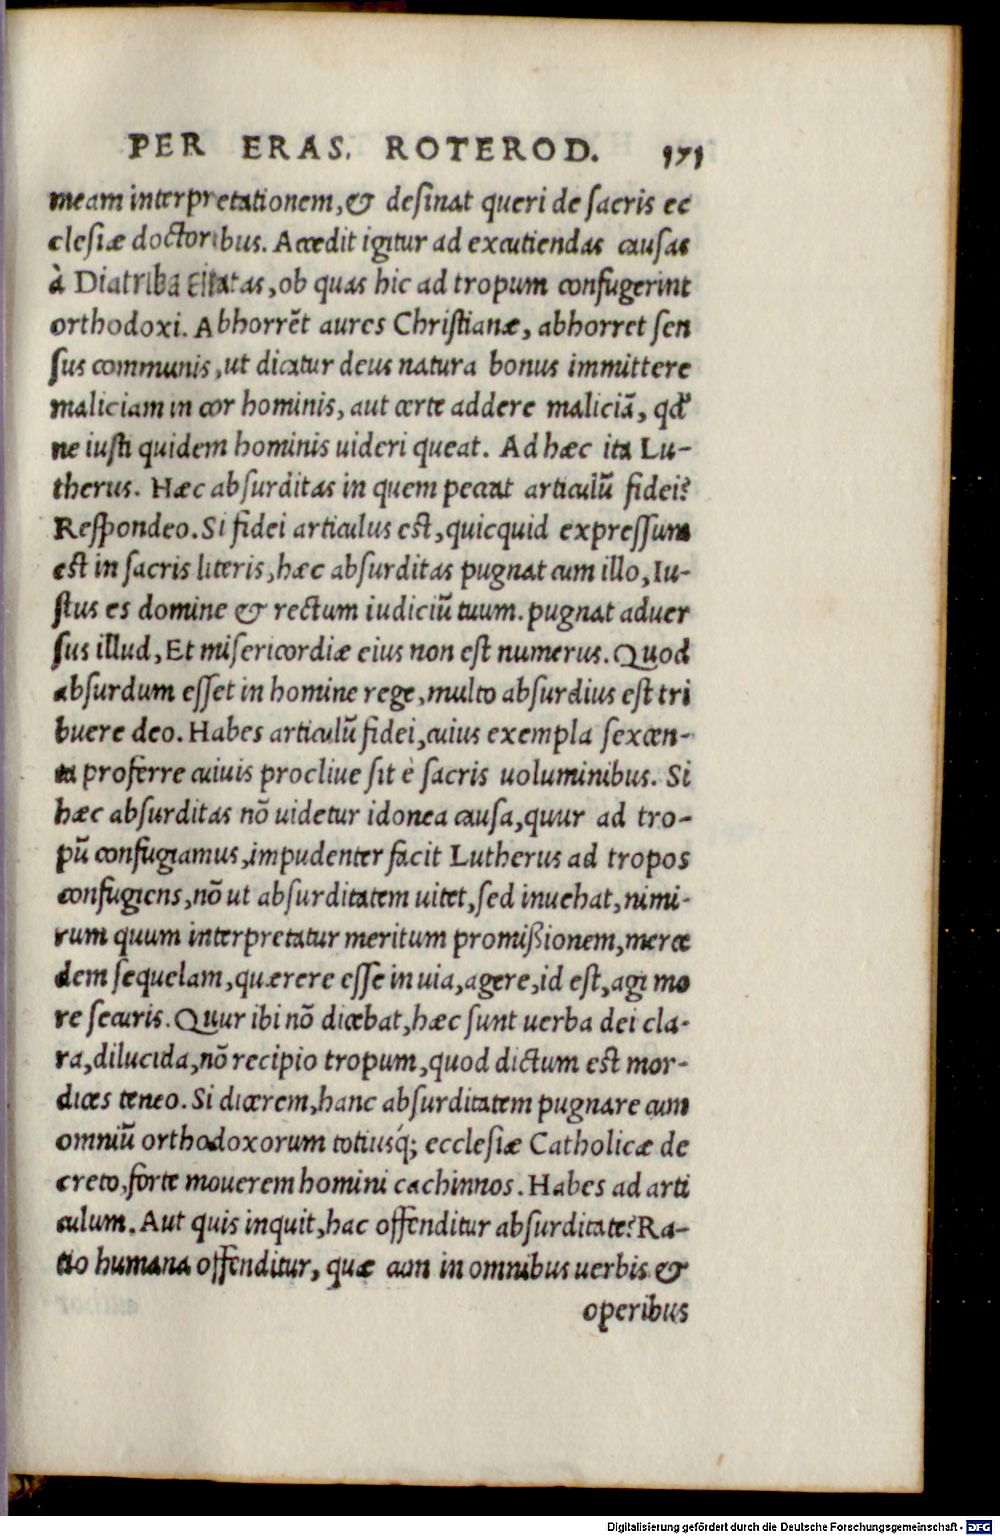 PER ERAS. ROTEROD. 171
meam interpretationem, & desinat queri de sacris ec
clesiæ doctoribus. Accedit igitur ad excutiendas causas
à Diatriba citatas, ob quas hic ad tropum confugerint
orthodoxi. Abhorrẽt aures Christianæ, abhorret sen
sus communis, ut dicatur deus natura bonus immittere
maliciam in cor hominis, aut certe addere maliciã, qđ
ne iusti quidem hominis uideri queat. Ad hæc ita Lu-
therus. Hæc absurditas in quem peccat articulũ fidei?
Respondeo. Si fidei articulus est, quicquid expressum
est in sacris literis, hæc absurditas pugnat cum illo, Iu-
stus es domine & rectum iudiciũ tuum. pugnat aduer
sus illud, Et misericordiæ eius non est numerus. Quod
absurdum esset in homine rege, multo absurdius est tri
buere deo. Habes articulũ fidei, cuius exempla sexcen-
ta proferre cuiuis procliue sit è sacris uoluminibus. Si
hæc absurditas nõ uidetur idonea causa, quur ad tro-
pũ confugiamus, impudenter facit Lutherus ad tropos
confugiens, nõ ut absurditatem uitet, sed inuehat, nimi-
rum quum interpretatur meritum promißionem, merce
dem sequelam, quærere esse in uia, agere, id est, agi mo
re securis. Quur ibi nõ dicebat, hæc sunt uerba dei cla-
ra, dilucida, nõ recipio tropum, quod dictum est mor-
dices teneo. Si dicerem, hanc absurditatem pugnare cum
omniũ orthodoxorum totiusq́; ecclesiæ Catholicæ de
creto, forte mouerem homini cachinnos. Habes ad arti
culum. Aut quis inquit, hac offenditur absurditate? Ra-
tio humana offenditur, quæ cum in omnibus uerbis &
operibus
Digitalisierung gefördert durch die Deutsche Forschungsgemeinschaft - DFG